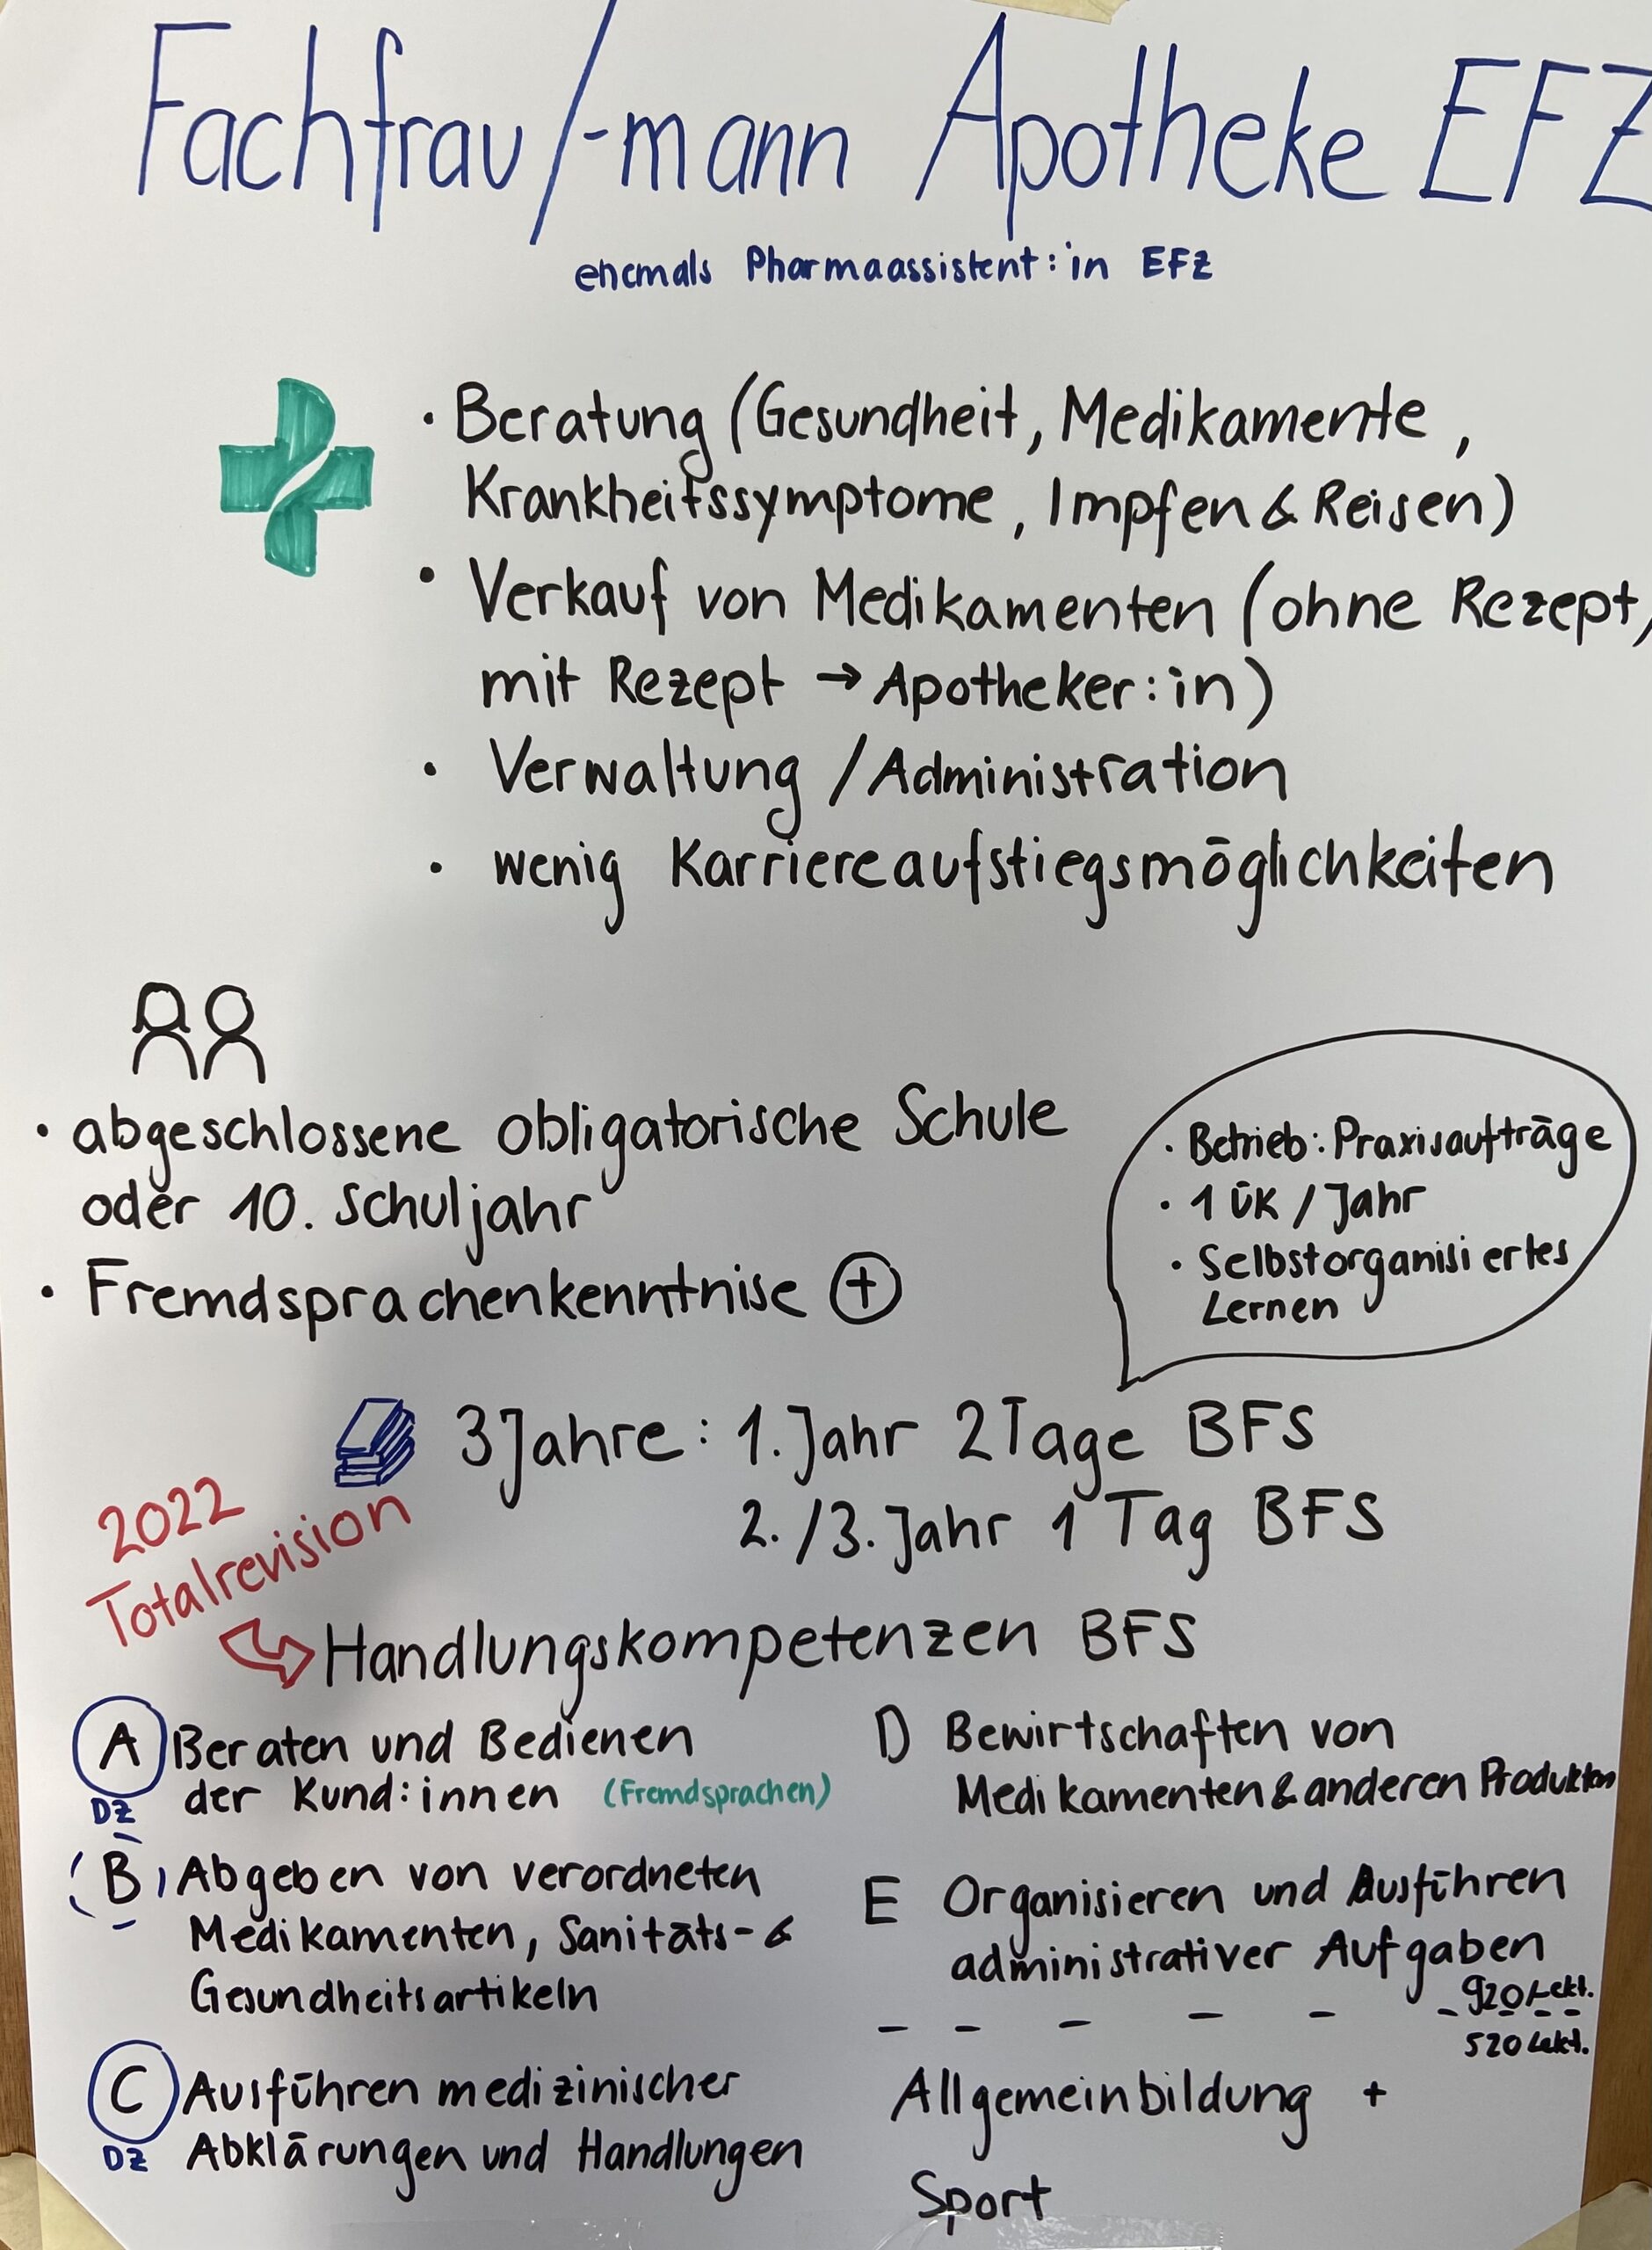 Fachfrau/-mann Apotheke EFZ
ehemals Pharmaassistent:in EFZ
• Beratung (Gesundheit, Medikamente,
Krankheitssymptome, Impfen & Reisen)
• Verkauf von Medikamenten (ohne Rezept,
mit Rezept → Apotheker:in)
• Verwaltung / Administration
• wenig Karriereaufstiegsmöglichkeiten
• abgeschlossene obligatorische Schule
oder 10. Schuljahr
• Fremdsprachenkenntnise +
• Betrieb: Praxisaufträge
• 1 ÜK / Jahr
• Selbstorganisiertes
Lernen
3 Jahre: 1. Jahr 2 Tage BFS
2./3. Jahr 1 Tag BFS
2022
Totalrevision
Handlungskompetenzen BFS
A Beraten und Bedienen
der Kund:innen (Fremdsprachen)
DZ
B Abgeben von verordneten
Medikamenten, Sanitäts- &
Gesundheitsartikeln
C Ausführen medizinischer
DZ Abklärungen und Handlungen
D Bewirtschaften von
Medikamenten & anderen Produkten
E Organisieren und Ausführen
administrativer Aufgaben
920 Lekt.
520 Lekt.
Allgemeinbildung +
Sport